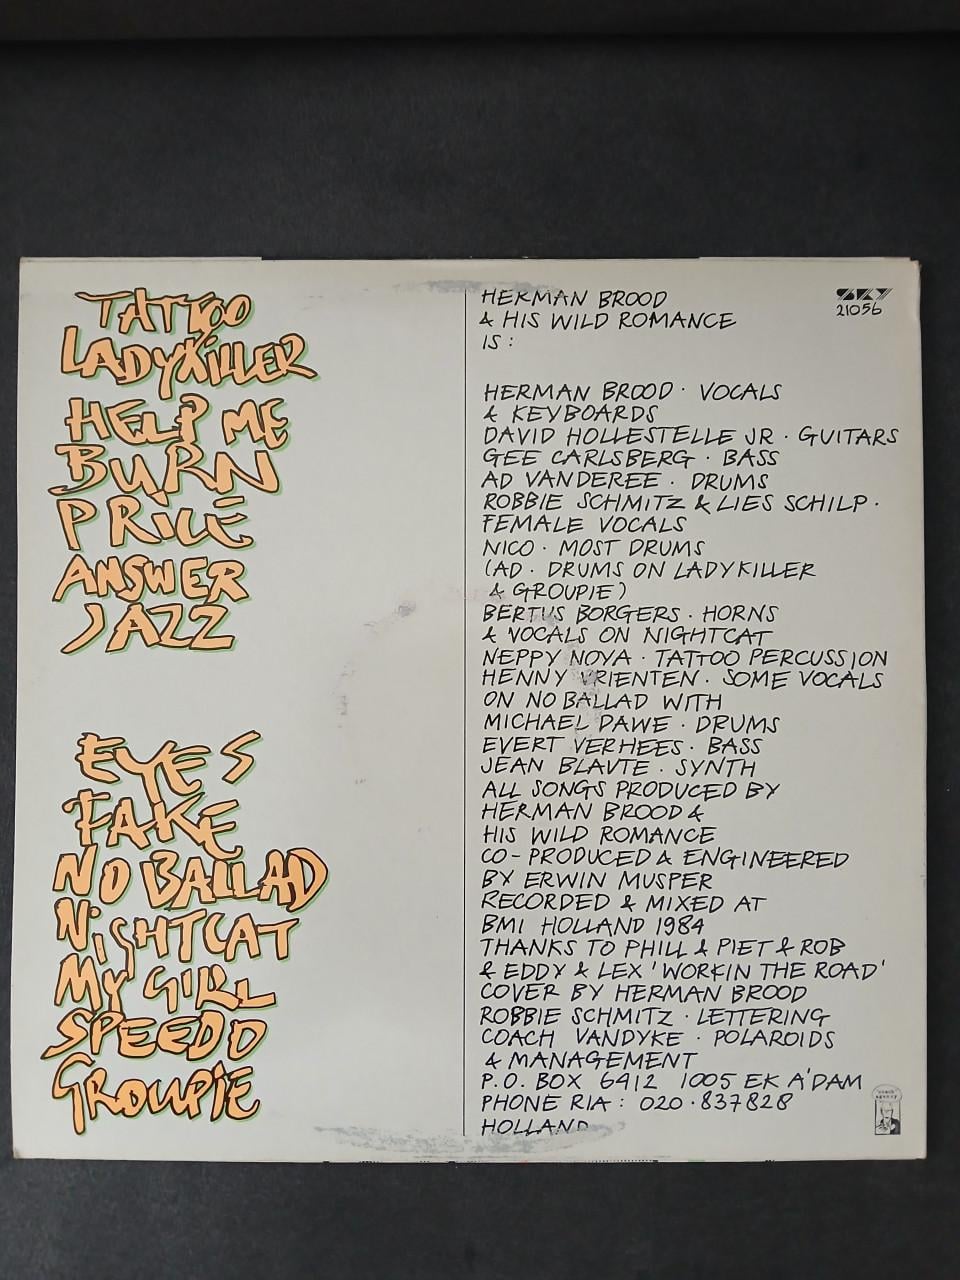 TATTOO
LADYKILLER
HELP ME
BURN
PRICE
ANSWER
JAZZ
EYES
FAKE
NO BALLAD
NiGHTCAT
MY GIRL
SPEEDO
GROUPiE
HERMAN BROOD
& HIS WILD ROMANCE
IS :
HERMAN BROOD · VOCALS
& KEYBOARDS
DAVID HOLLESTELLE JR · GUITARS
GEE CARLSBERG · BASS
AD VANDEREE · DRUMS
ROBBIE SCHMITZ & LIES SCHILP ·
FEMALE VOCALS
NICO · MOST DRUMS
(AD · DRUMS ON LADYKILLER
& GROUPIE)
BERTUS BORGERS · HORNS
& VOCALS ON NIGHTCAT
NEPPY NOYA · TATTOO PERCUSSION
HENNY VRIENTEN · SOME VOCALS
ON NO BALLAD WITH
MICHAEL DAWE · DRUMS
EVERT VERHEES · BASS
JEAN BLAUTE · SYNTH
ALL SONGS PRODUCED BY
HERMAN BROOD &
HIS WILD ROMANCE
CO-PRODUCED & ENGINEERED
BY ERWIN MUSPER
RECORDED & MIXED AT
BMI HOLLAND 1984
THANKS TO PHILL & PIET & ROB
& EDDY & LEX 'WORKIN THE ROAD'
COVER BY HERMAN BROOD
ROBBIE SCHMITZ · LETTERING
COACH VANDYKE · POLAROIDS
& MANAGEMENT
P.O. BOX 6412 1005 EK A'DAM
PHONE RIA : 020·837828
HOLLAND
SKY
21056